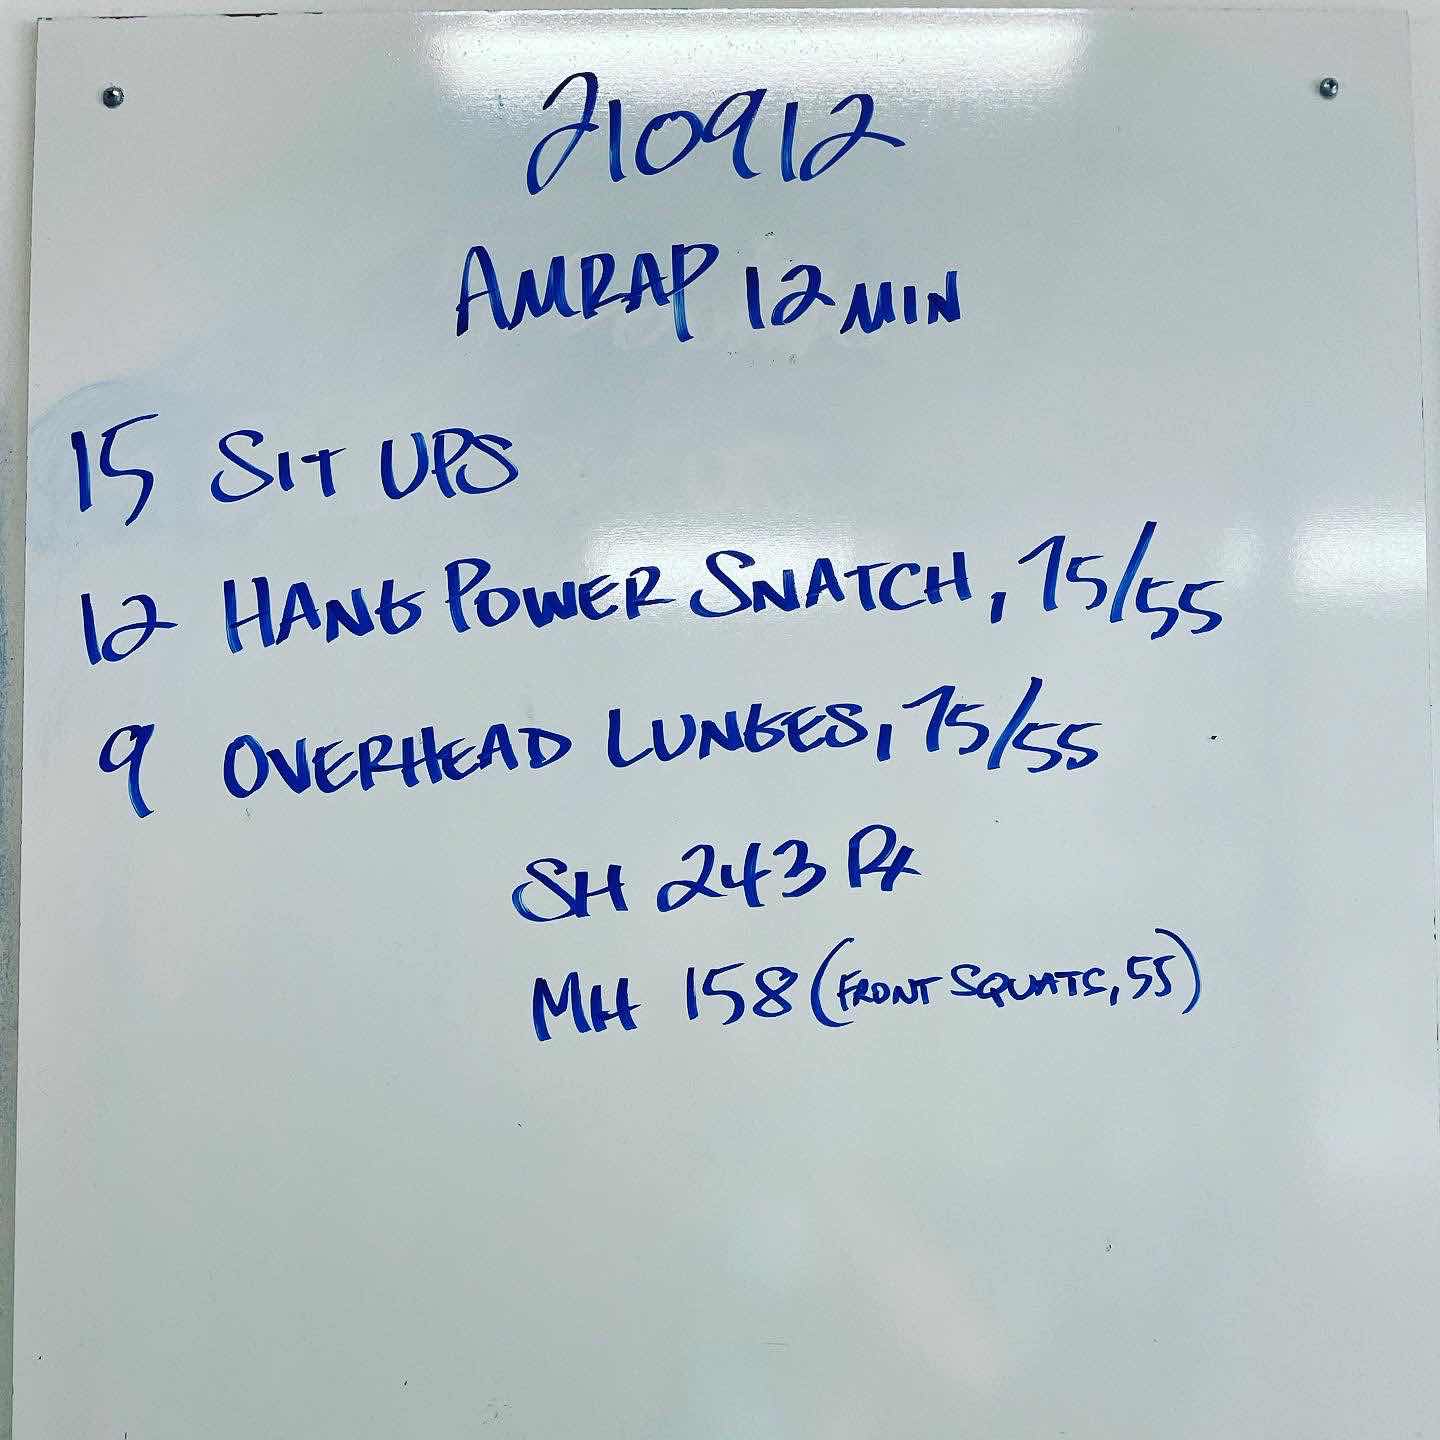 210912
AMRAP 12 MIN
15 SIT UPS
12 HANG POWER SNATCH, 75/55
9 OVERHEAD LUNGES, 75/55
SH 243 Rx
MH 158 (FRONT SQUATS, 55)